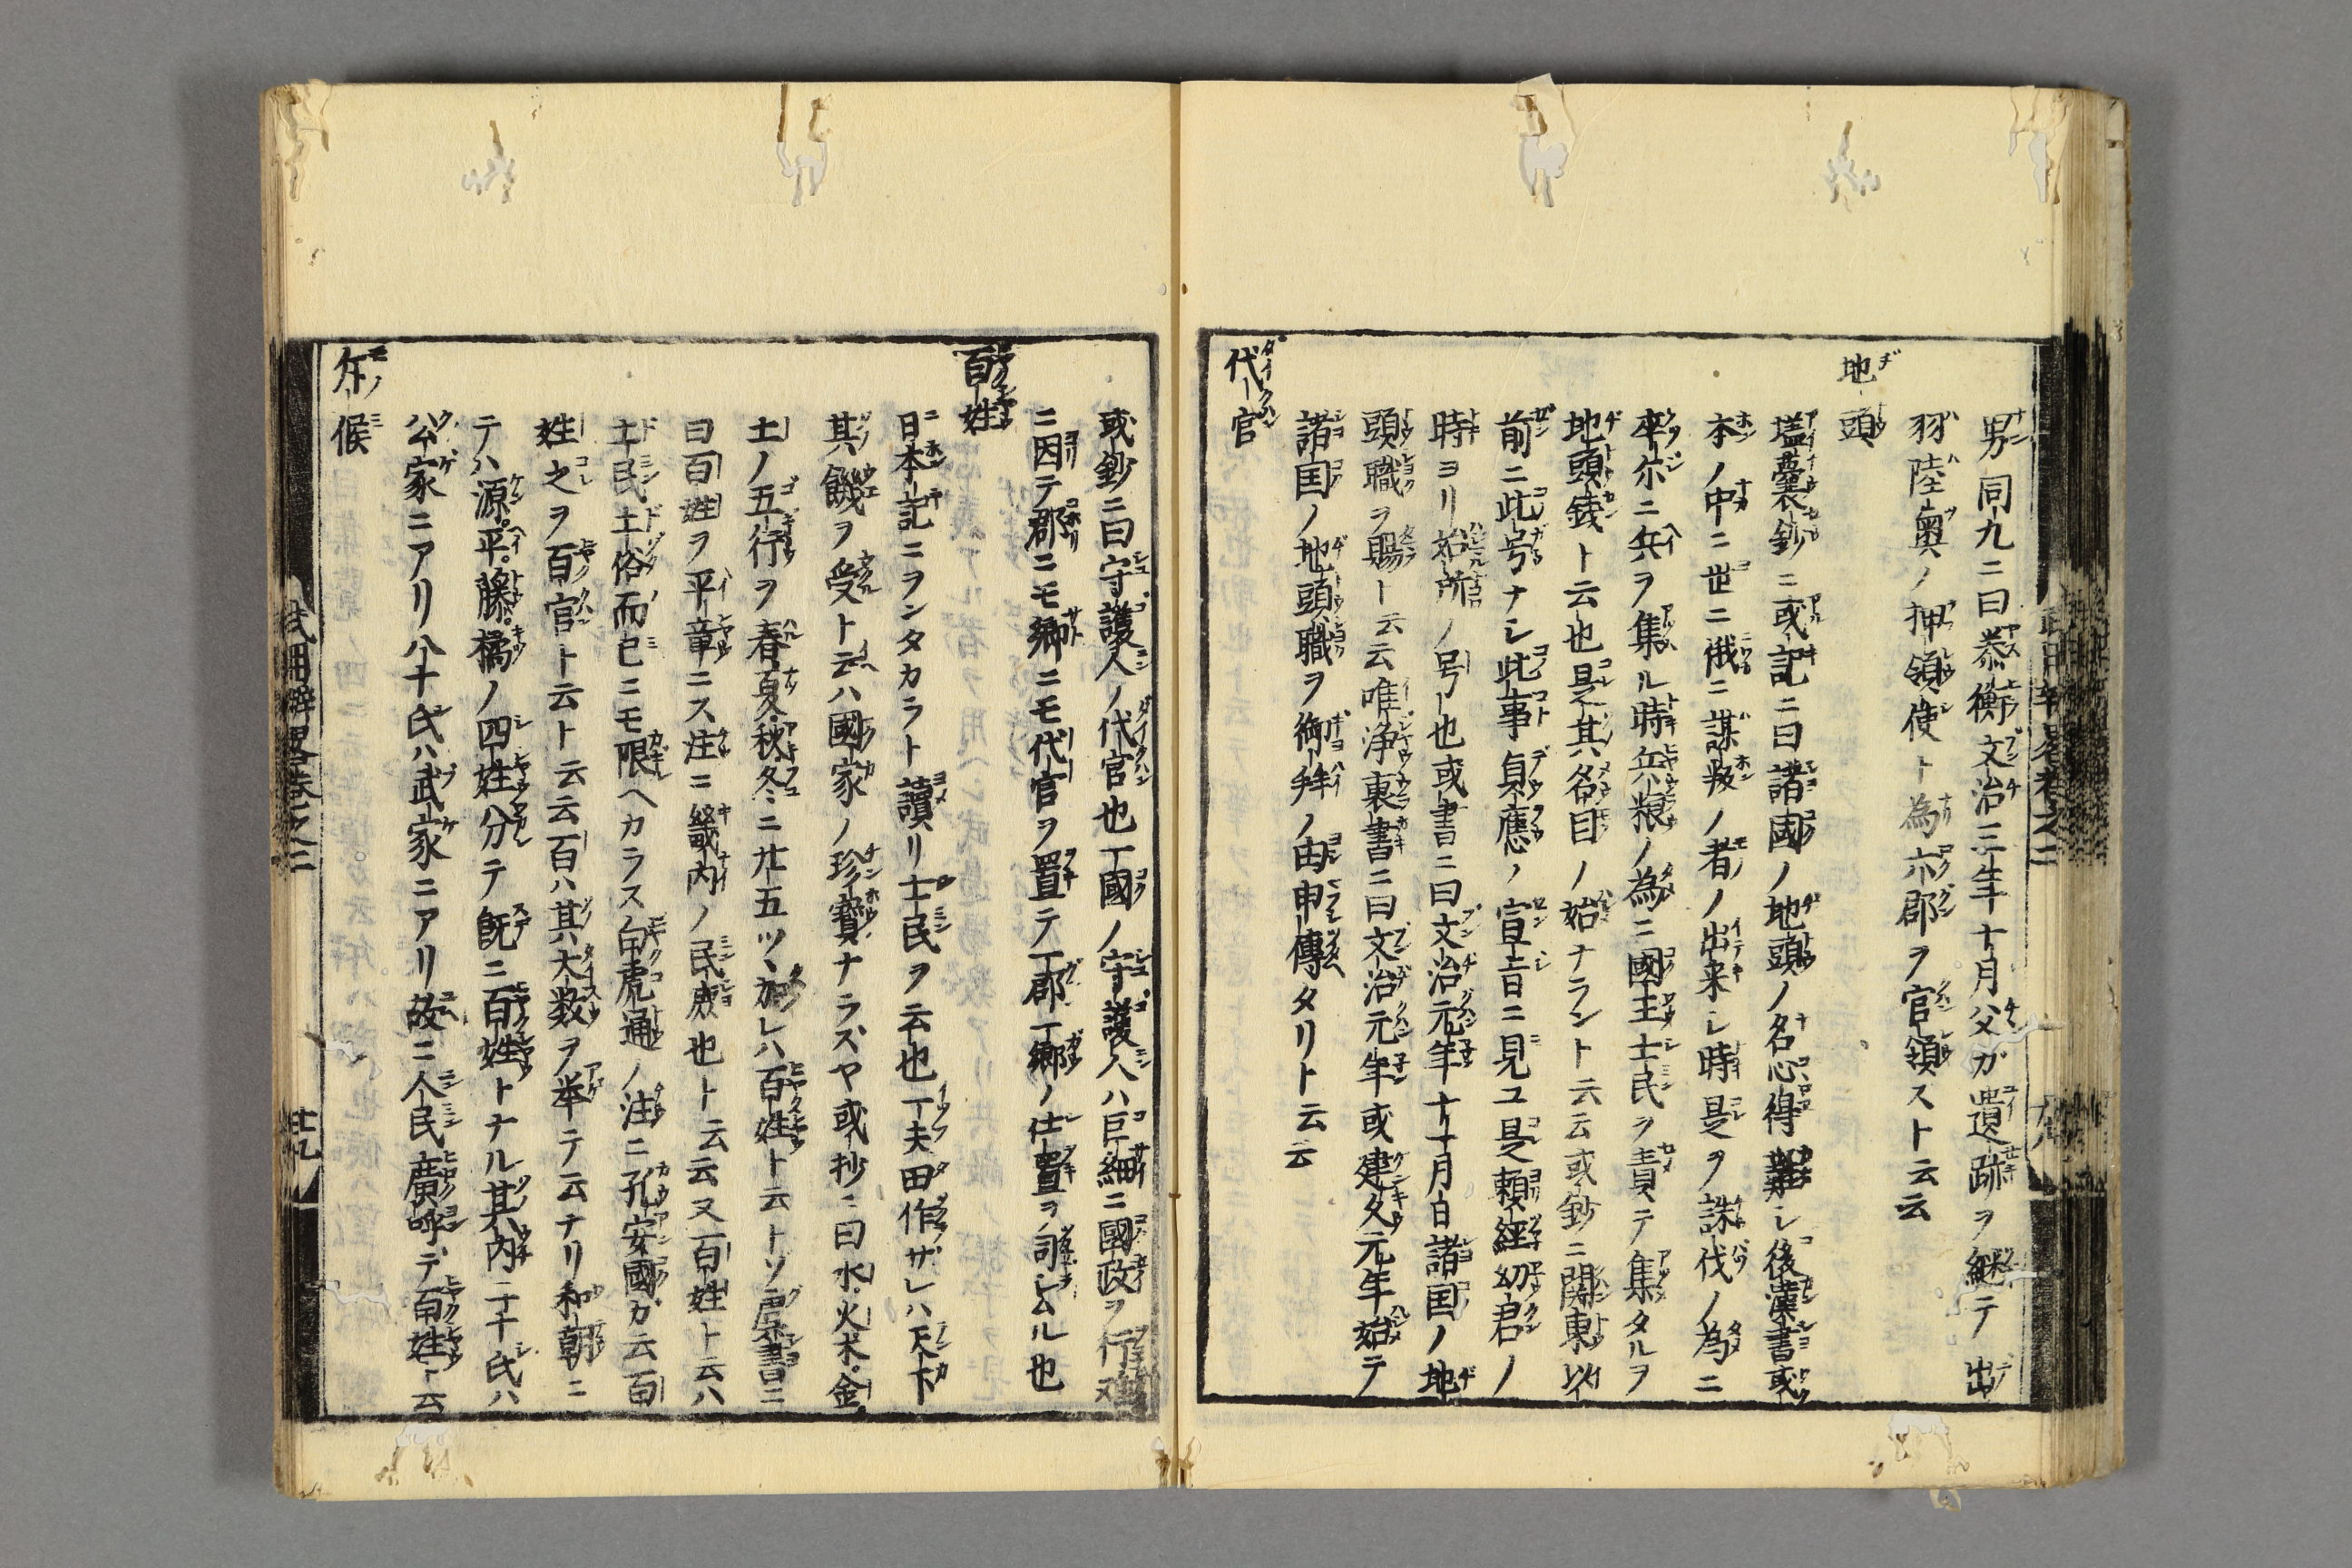 男同九ニ曰泰衡文治三年十月父ガ遺跡ヲ継テ出
羽陸奥ノ押領使ト為六郡ヲ官領スト云云
地頭
壒囊鈔ニ或記ニ曰諸國ノ地頭ノ名心得難シ後漢書或
本ノ中ニ世ニ俄ニ謀叛ノ者ノ出来レ時是ヲ誅伐ノ為ニ
卒尓ニ兵ヲ集ル時兵粮ノ為ニ國王士民ヲ責テ集タルヲ
地頭錢ト云也是其名目ノ始ナラント云云或鈔ニ関東以
前ニ此号ナシ此事貞應ノ宣旨ニ見ユ是頼經幼君ノ
時ヨリ始所ノ号也或書ニ曰文治元年十一月白諸国ノ地
頭職ヲ賜ト云云唯浄裏書ニ曰文治元年或建久元年始テ
諸国ノ地頭職ヲ御拝ノ由申傳タリト云云
代官
或鈔ニ曰守護人ノ代官也一國ノ守護人ハ巨細ニ國政ヲ行
ニ因テ郡ニモ郷ニモ代官ヲ置テ一郡一郷ノ仕置ヲ司シムル也
百姓
日本記ニヲンタカラト讀リ士民ヲ云也一夫田作ザレハ天下
其饑ヲ受ト云ハ國家ノ珍寶ナラズヤ或抄ニ曰水火木金
土ノ五行ヲ春夏秋冬ニ廿五ツヽ加レハ百姓ト云トゾ虞書ニ
曰百姓ヲ平章ニス注ニ畿内ノ民庶也ト云云又百姓ト云ハ
土民土俗而已ニモ限ヘカラス白虎通ノ注ニ孔安國ガ云百
姓之ヲ百官ト云ト云云百ハ其大数ヲ挙テ云ナリ和朝ニ
テハ源平藤橘ノ四姓分テ既ニ百姓トナル其内二十氏ハ
公家ニアリ八十氏ハ武家ニアリ故ニ人民廣呼デ百姓ト云
斥候
武用辨畧巻之二
廿九